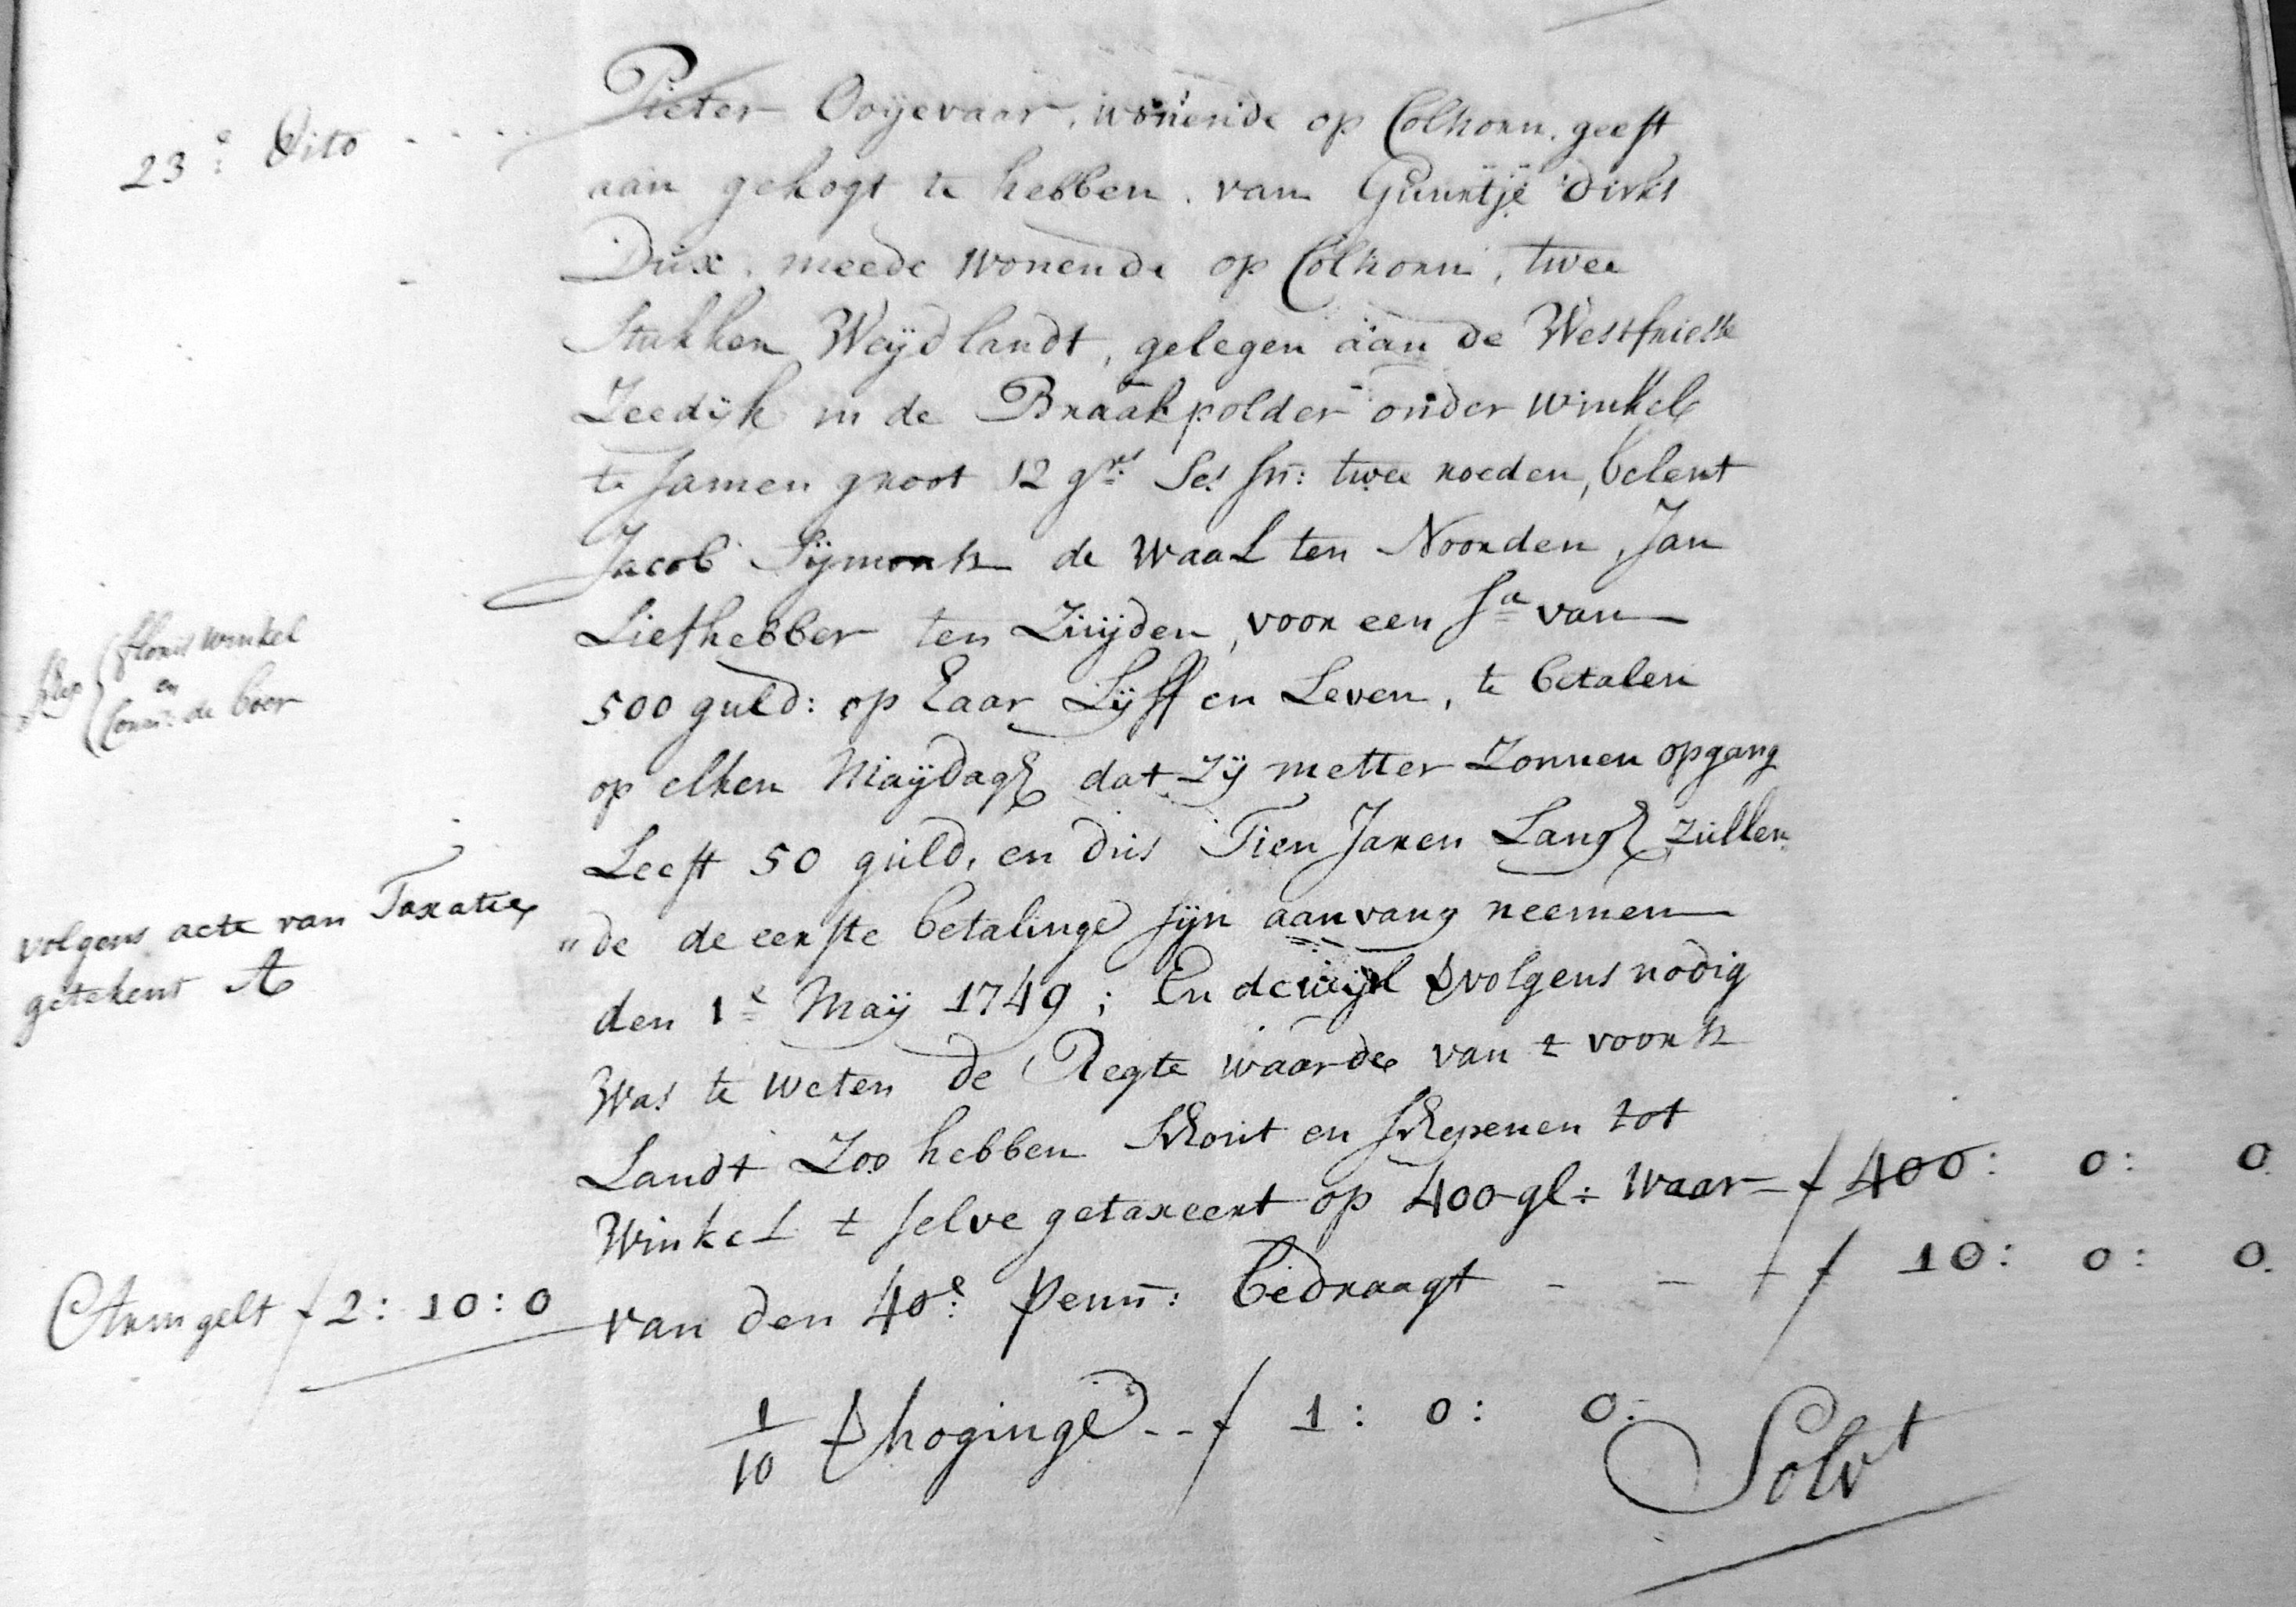 23e: Dito - - - -
Pieter Ooijevaar, wonende op Colhorn, geeft
aan gekogt te hebben, van Guurtje Dirks
Dux, meede wonende op Colhorn, twee
Stukken Weijdlandt, gelegen aan de Westfriesse
Zeedijk in de Braakpolder onder Winkel
te samen groot 12 grs: Ses sn: twee roeden, belent
Jacob Sijmonsz de Waal ten Noorden, Jan
Liefhebber ten Zuijden, voor een Sa van
500 guld: op haar Lijff en Leven, te betalen
op elken Maijdag dat zij metter Zonnen opgang
Leeft 50 guld, en dus Tien Jaren Lang, zullen
"de de eerste betalinge sijn aanvang neemen
den 1e Maij 1749; En dewijl vervolgens nodig
Was te weten de Regte waarde van t voorsz
Landt Zoo hebben Schout en Schepenen tot
Winkel t selve getaxeert op 400 gl: Waar - f 400: 0: 0.
van den 40e: Penn: bedraagt - - - f 10: 0: 0.
1/10 verhoginge - - f 1: 0: 0:
Solvt
Schep
floris winkel
en
Corn: de boer
volgens acte van Taxatie
getekent A
Armgelt f 2: 10: 0